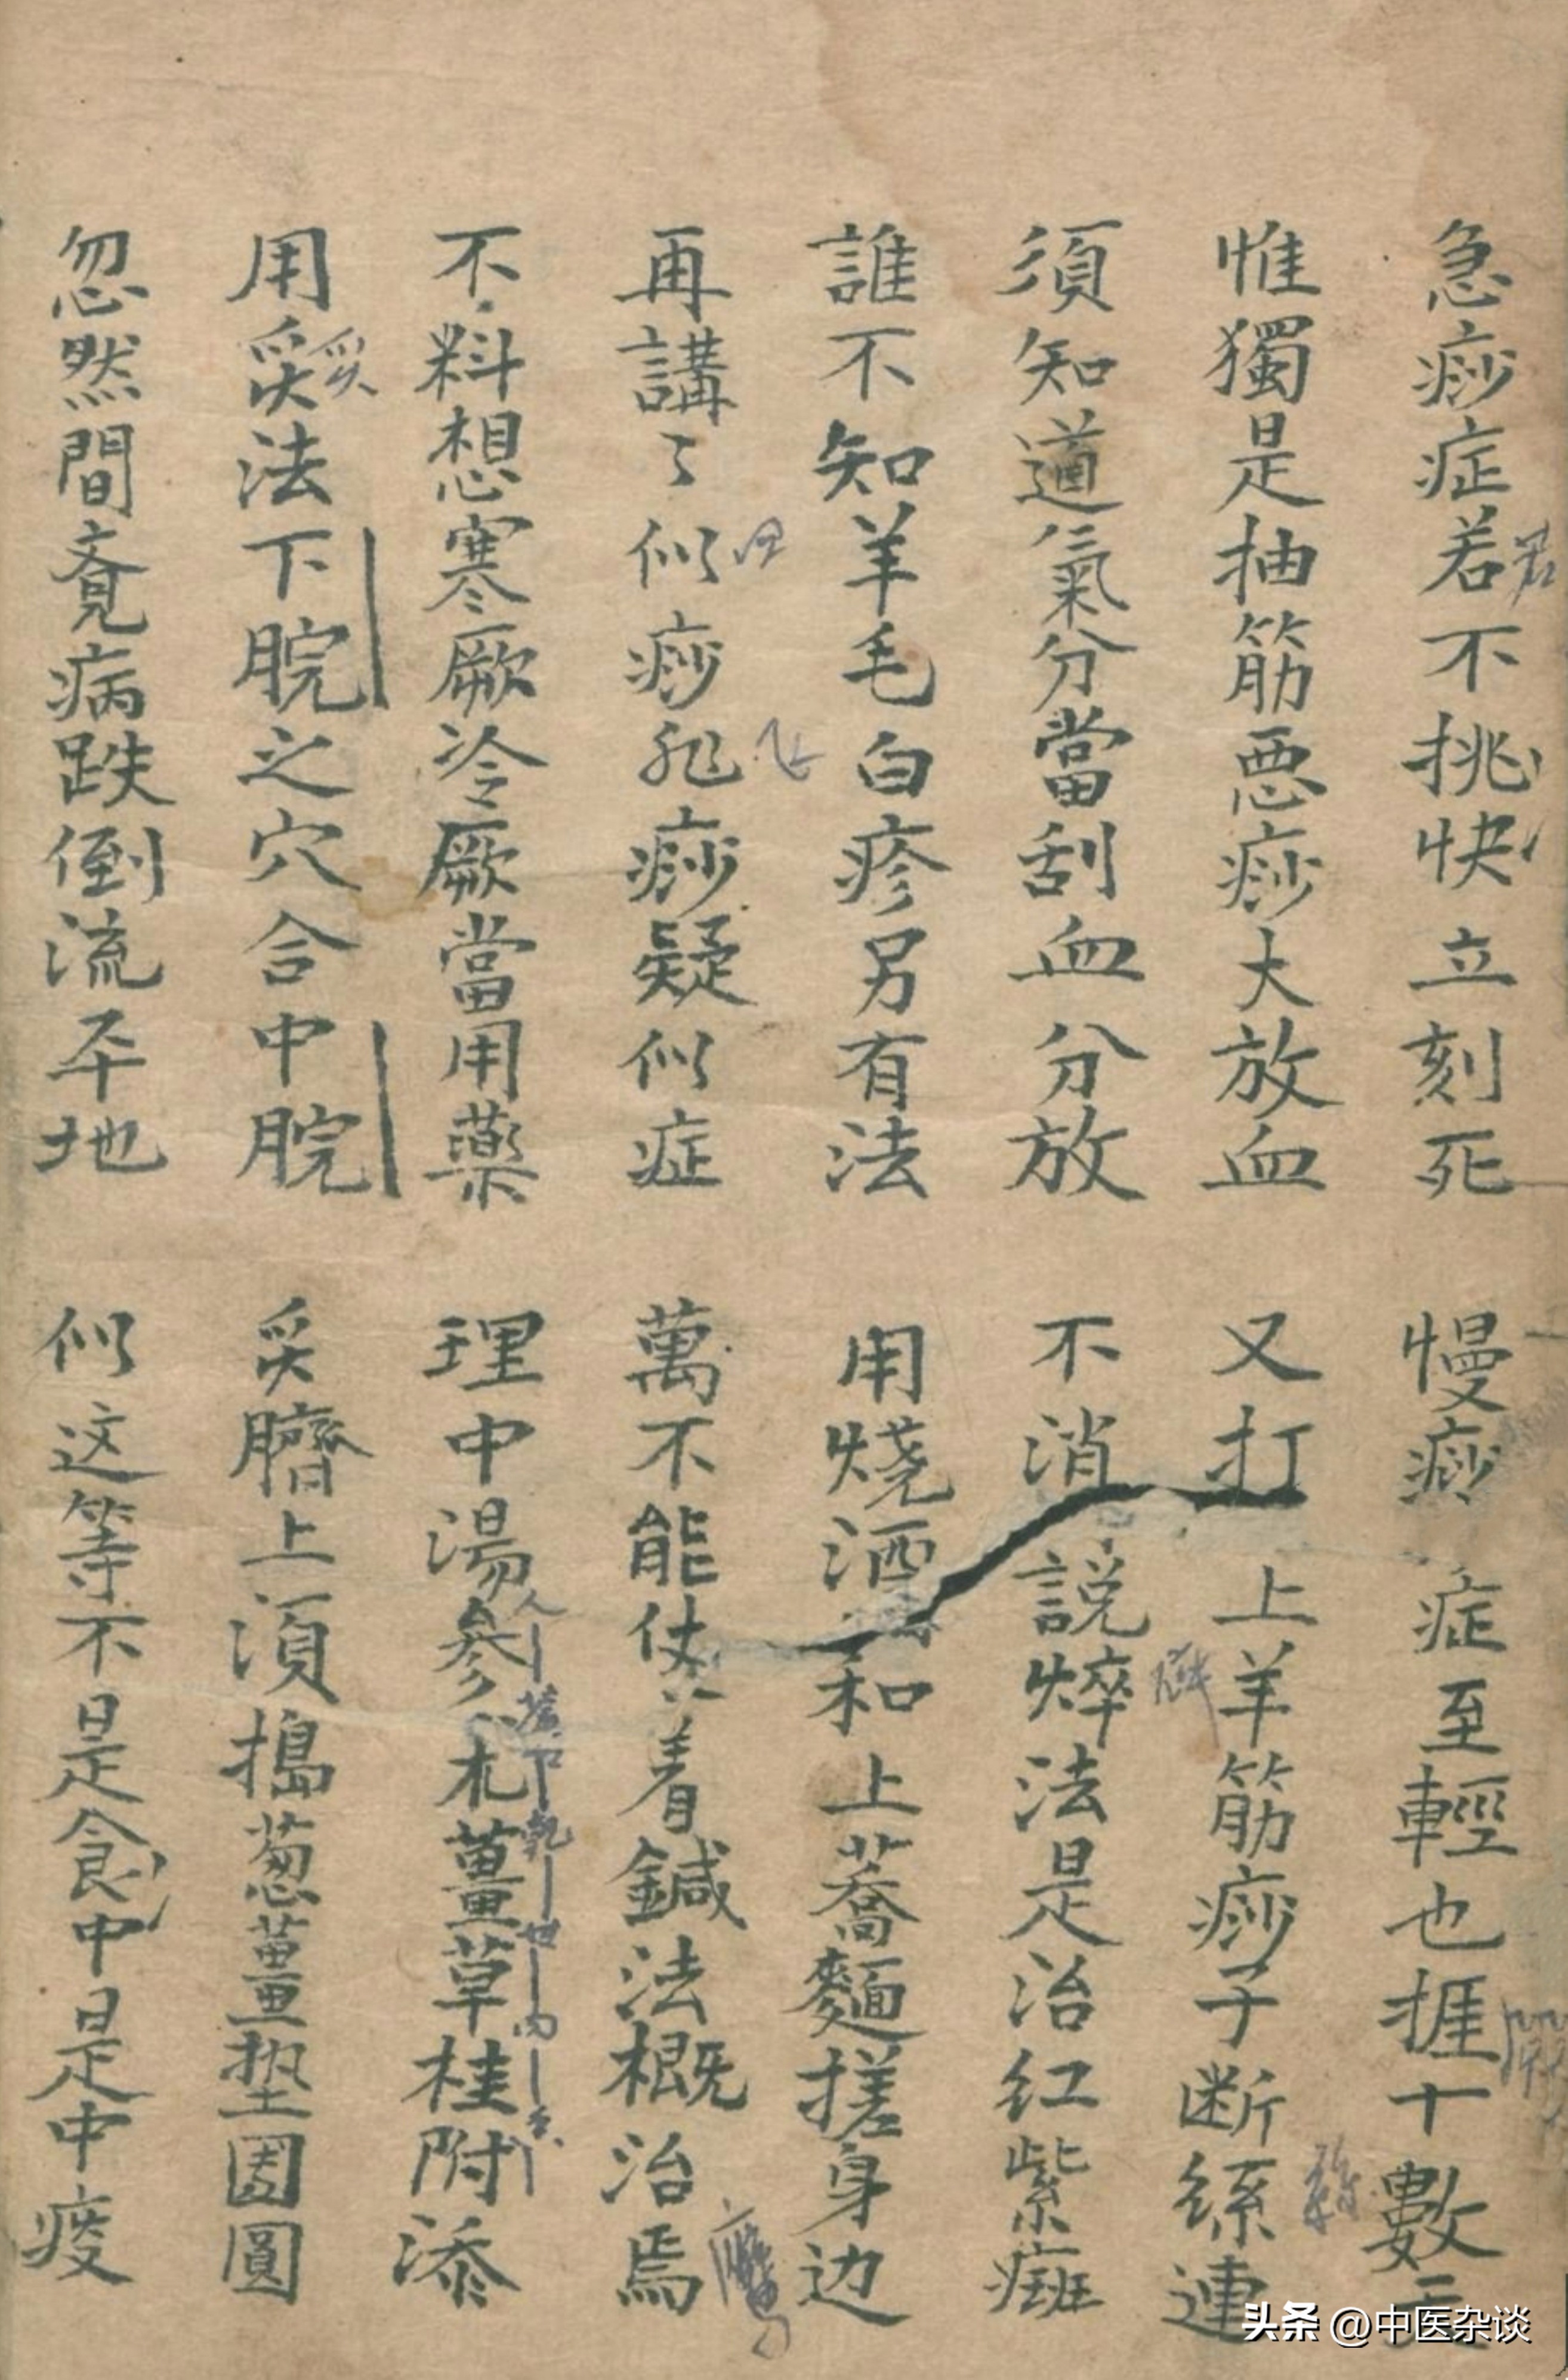 急痧症若不挑快立刻死
慢痧症至輕也捱十數天
惟獨是抽筋惡痧大放血
又打上羊筋痧子断絲連
須知道氣分當刮血分放
不消說焠法是治红紫癍
誰不知羊毛白疹另有法
用燒酒和上蕎麵搓身边
再講々似痧非痧疑似症
萬不能仗着鍼法概治焉
不料想寒厥冷厥當用藥
理中湯參术薑草桂附添
用灸法下脘之穴合中脘
灸臍上須搗葱薑垫圆圓
忽然間竟病跌倒流平地
似这等不是食中是中痰
头条 @中医杂谈